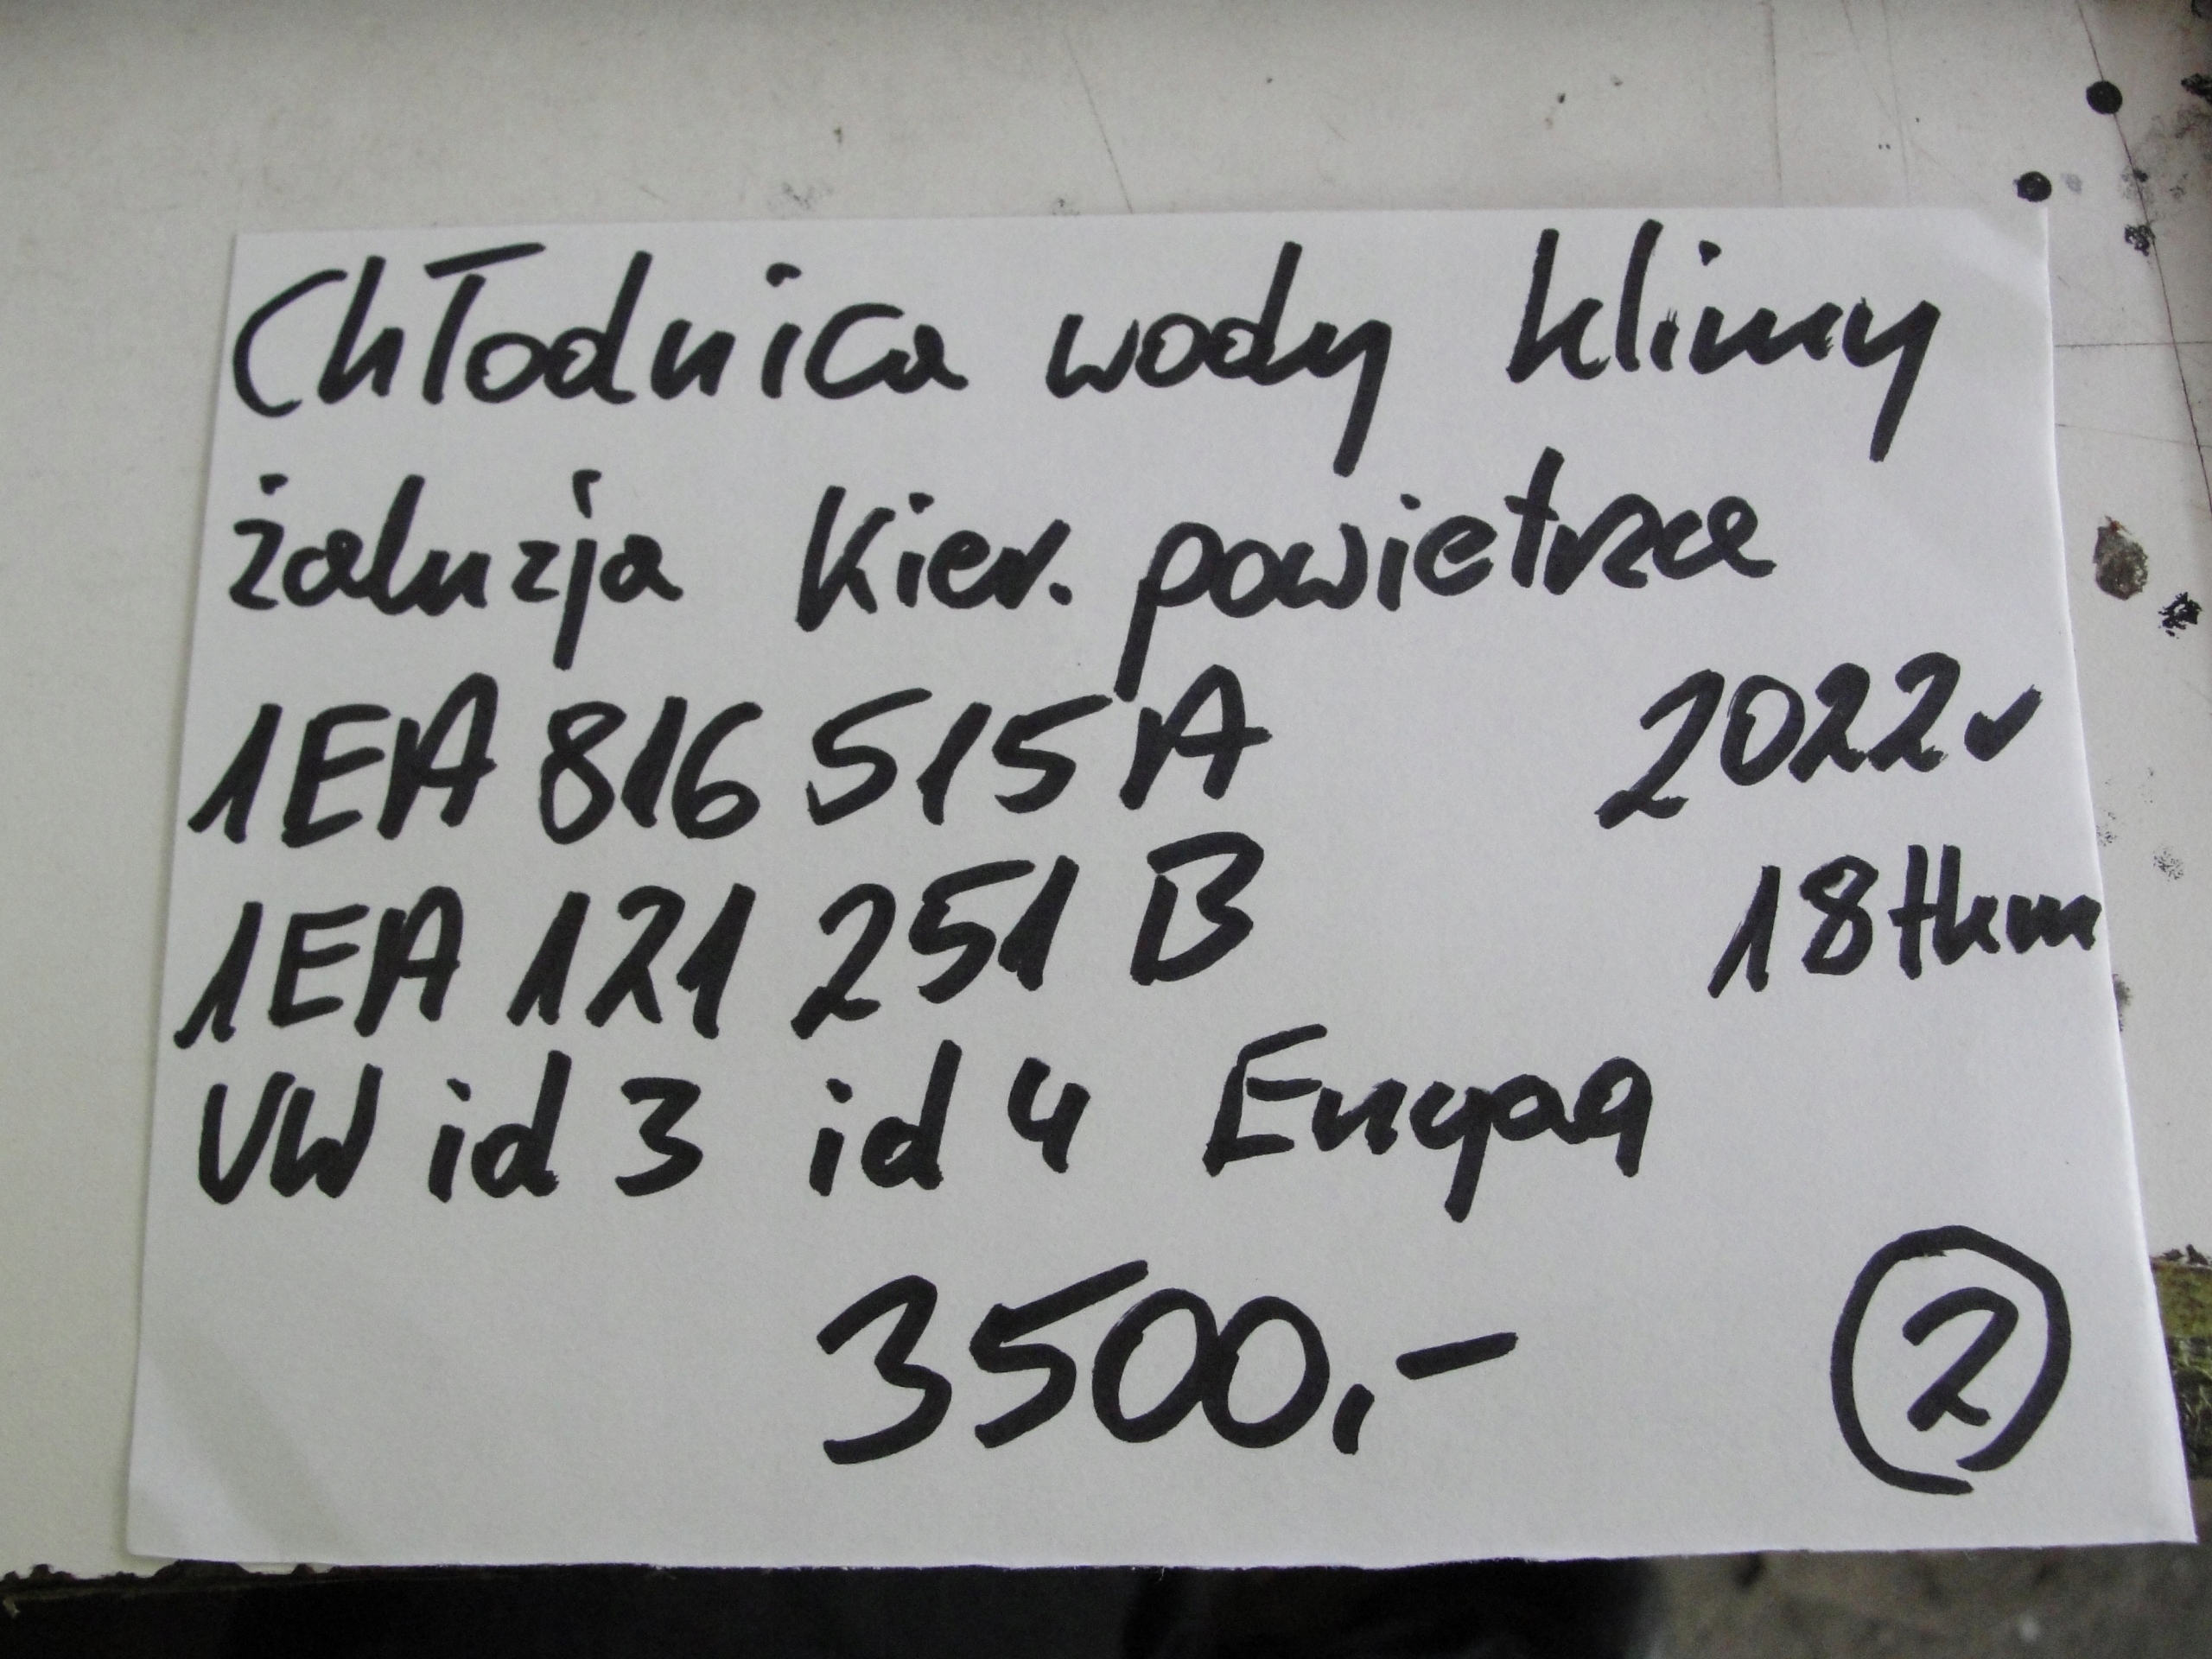 Chłodnica wody klimy
żaluzja Kier. powietrza
1EA 816 515 A 2022r
1EA 121 251 B 18tkm
VW id 3 id 4 Enyaq
3500,-
2